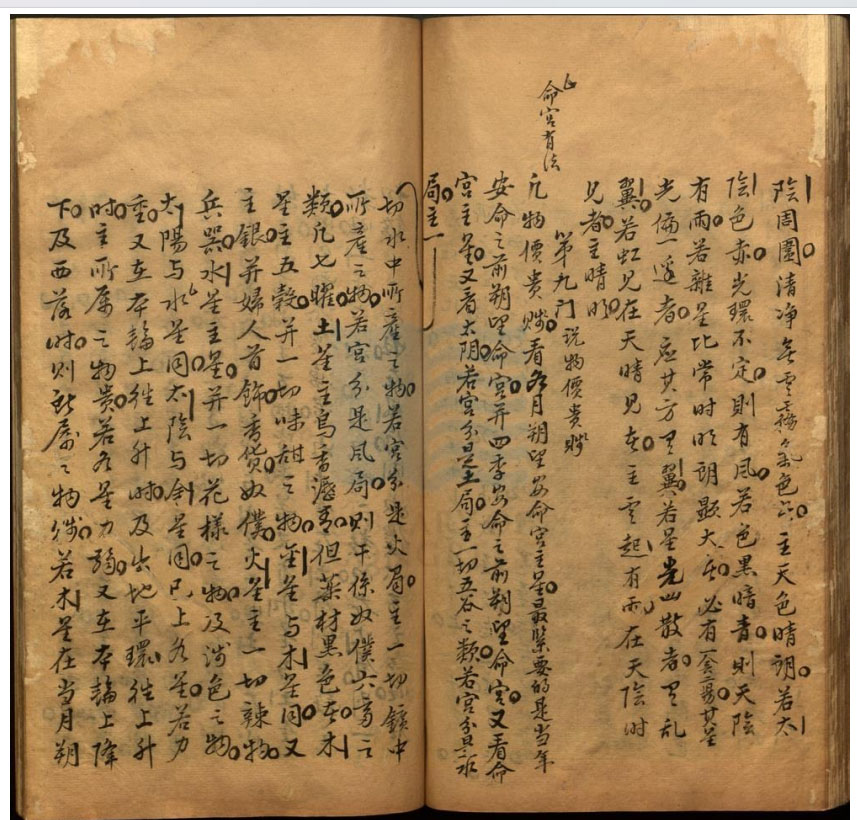 陰周圍清净無雲霧氣色只主天色晴朗若太
陰色赤光環不定則有風若色黑暗青則天陰
有雨若雜星比常時明朗顯大至必有其星
光偏一邊者應其方更翼若星光散者更乱
翼若虹見在天晴見者主雲起有雨在天陰时
見者主晴明
第九門 説物價貴賤
命宮有法
凡物價貴賤看各月朔望安命宮主星最緊要的是當年
安命之前朔望命宮并四季安命之前朔望命宮又看命
宮主星又看太阴若宮分是土局主一切五谷之類若宮分是水
局主一
切水中所產之物若宮分是火局主一切鑛中
所產之物若宮分是風局則干係奴僕六畜之
類凡七曜土星主烏香瀝青但藥材黑色者木
星主五穀并一切味甜之物金星与木星同又
主銀并婦人首飾香貨奴僕火星主一切辣物
兵器水星主星并一切花樣之物及淺色之物
太陽与火星同太陰与金星同已上各星若力
重又在本輪上徃上升时及出地平環徃上升
时主所属之物貴若各星力弱又在本輪上降
下及西落时則所属之物賤若木星在当月朔